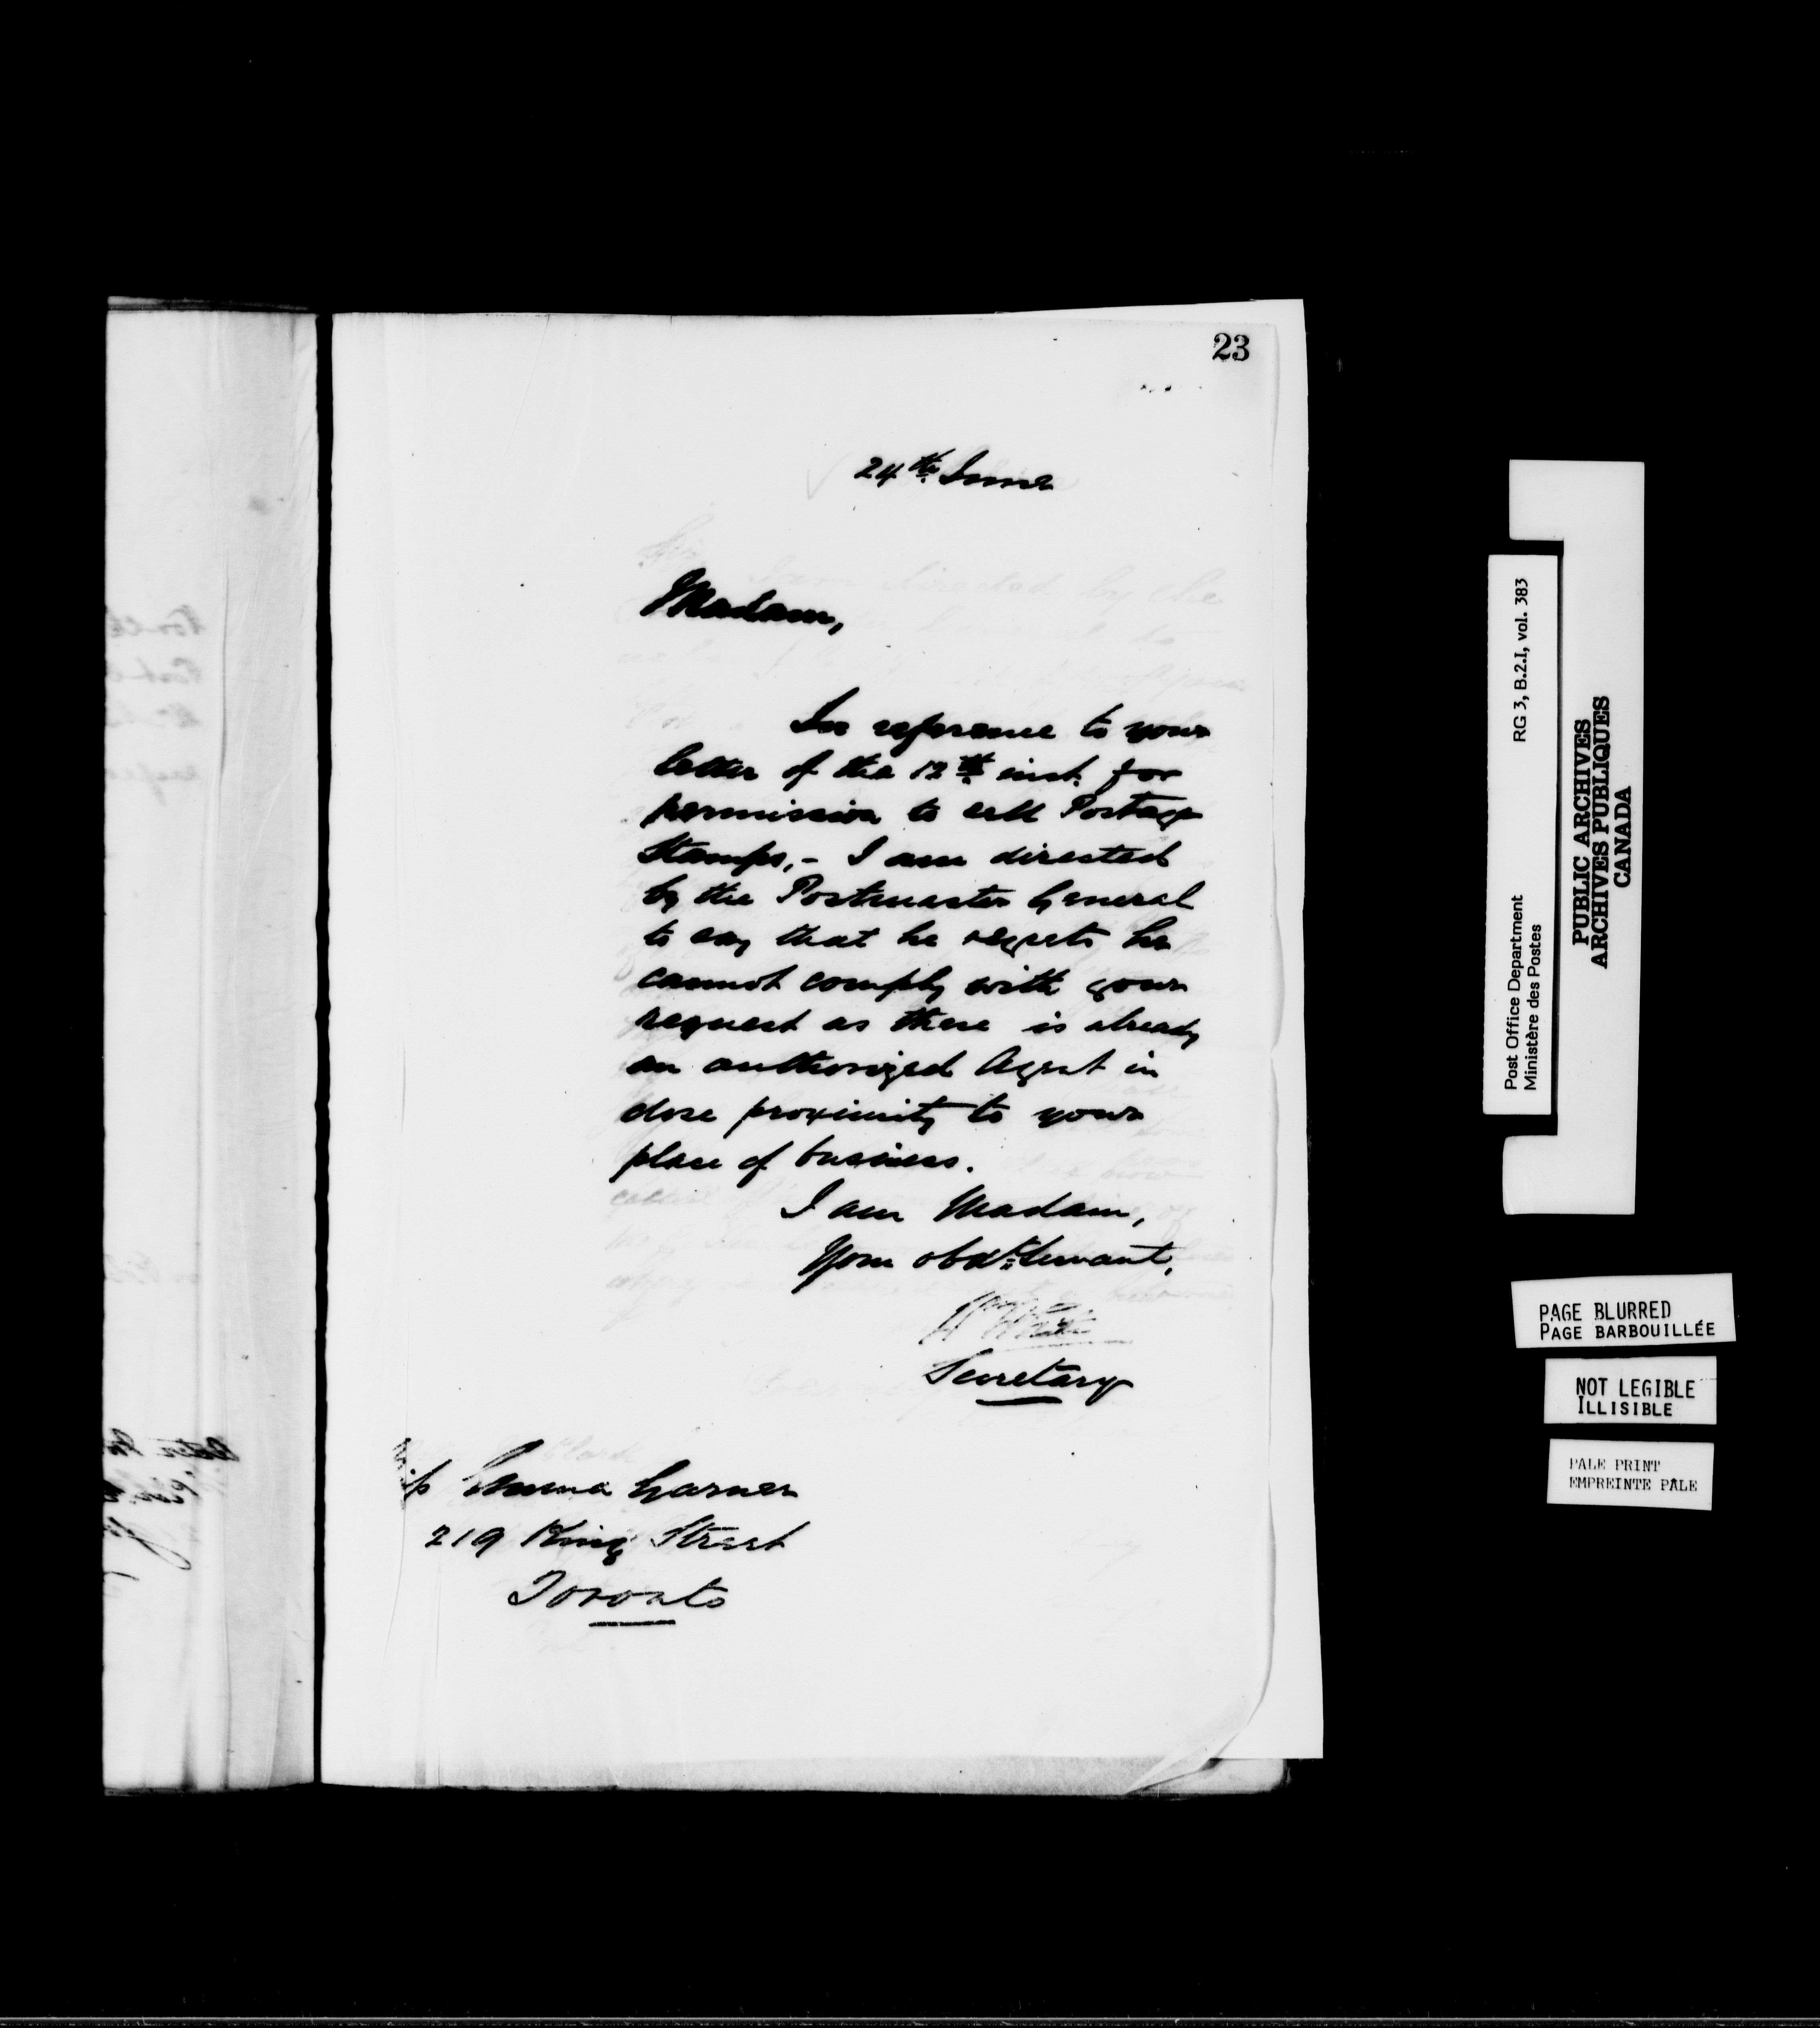 23
24th June
Madam,
In reference to your
letter of the 12th inst. for
permission to sell Postage
Stamps,- I am directed
by the Postmaster General
to say that he regrets he
cannot comply with your
request as there is already
an authorized Agent in
close proximity to your
place of business.
I am Madam,
Your obdt. Servant,
Secretary
Emma Garner
219 King Street
Toronto
Post Office Department RG 3, B.2.I, vol. 383
Ministère des Postes
PUBLIC ARCHIVES
ARCHIVES PUBLIQUES
CANADA
PAGE BLURRED
PAGE BARBOUILLÉE
NOT LEGIBLE
ILLISIBLE
PALE PRINT
EMPREINTE PÂLE